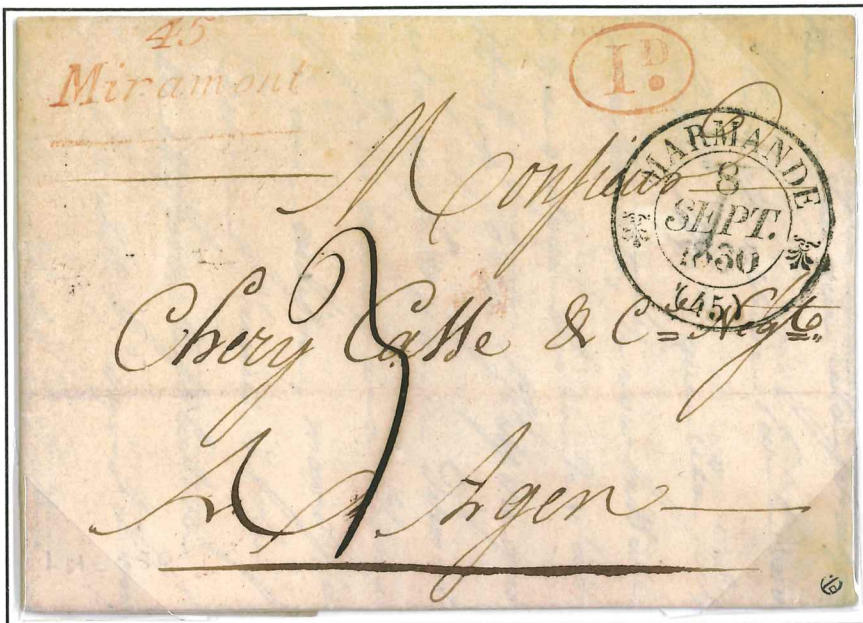 45
Miramont
1D.
MARMANDE
8
SEPT.
1830
(45)
Monsieur
Chery Casse & Ce Negts.
3
A Agen